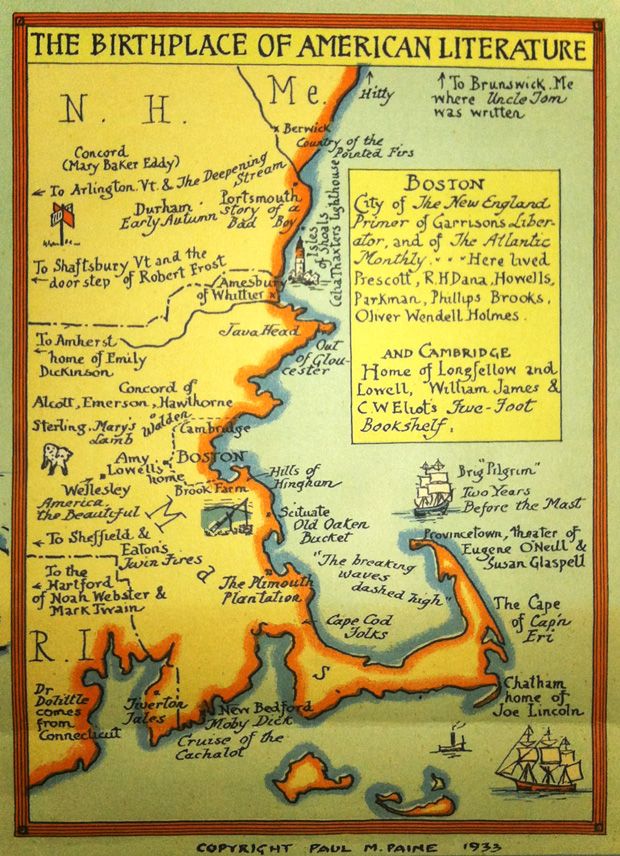 THE BIRTHPLACE OF AMERICAN LITERATURE
N. H.
Me.
Hitty
To Brunswick, Me
where Uncle Tom
was written
Berwick
Country of the
Pointed Firs
Concord
(Mary Baker Eddy)
To Arlington, Vt. & The Deepening
Stream
Durham
Early Autumn
Portsmouth
Story of a
Bad Boy
Isles
of Shoals
Celia Thaxter's Lighthouse
To Shaftsbury Vt and the
door step of Robert Frost
Amesbury
of Whittier
Java Head
Out
of Glou-
cester
BOSTON
City of The New England
Primer of Garrisons Liber-
ator, and of The Atlantic
Monthly. . . . Here lived
Prescott, R.H Dana, Howells,
Parkman, Phillips Brooks,
Oliver Wendell Holmes.
AND CAMBRIDGE
Home of Longfellow and
Lowell, William James &
C W Eliot's Five-Foot
Bookshelf.
To Amherst
home of Emily
Dickinson
Concord of
Alcott, Emerson, Hawthorne
Walden
Sterling, Mary's
Lamb
Cambridge
BOSTON
Amy
Lowell's
home
Wellesley
America
the Beautiful
Brook Farm
Hills of
Hingham
Brig "Pilgrim"
Two Years
Before the Mast
Scituate
Old Oaken
Bucket
M
a
s
To Sheffield &
Eaton's
Twin Fires
Provincetown, theater of
Eugene O'Neill &
Susan Glaspell
"The breaking
waves
dashed high"
To the
Hartford
of Noah Webster &
Mark Twain
The Plimouth
Plantation
The Cape
of Cap'n
Eri
Cape Cod
Folks
R. I
Chatham
home of
Joe Lincoln
Dr
Dolittle
comes
from
Connecticut
Tiverton
Tales
New Bedford
Moby Dick
Cruise of the
Cachalot
COPYRIGHT PAUL M. PAINE 1933